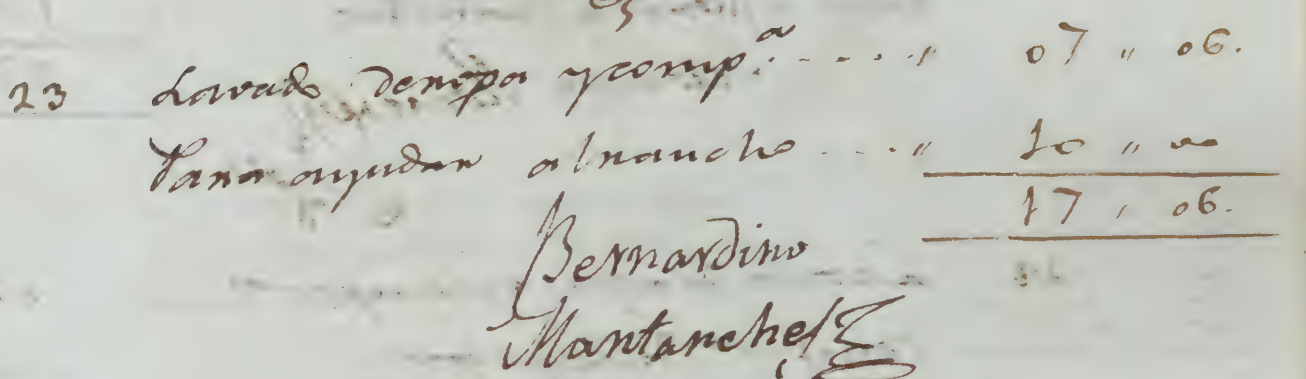 23 Lavado de ropa y comp.ª . . . . " 07 " 06.
Para ayudar al rancho . . . " 10 " 00
17 " 06.
Bernardino
Mantanches